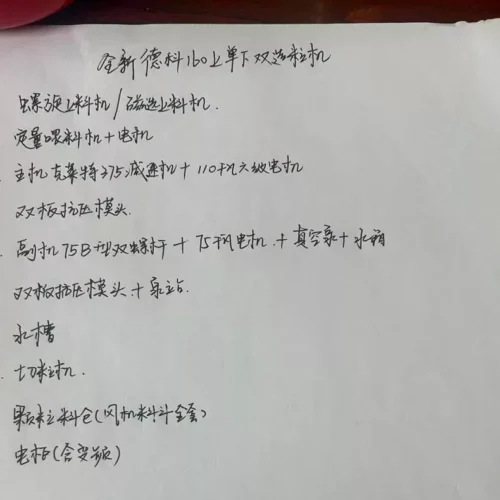 全新德科160上单下双造粒机
螺旋上料机/磁选上料机.
定量喂料机+电机
主机克莱特375减速机+110千瓦六级电机
双板抗压模头.
副机75B型双螺杆+75千瓦电机.+真空泵+水箱
双板抗压模头.+泵站.
水槽
切粒机.
颗粒料仓(风机料斗全套)
电柜(含变频)